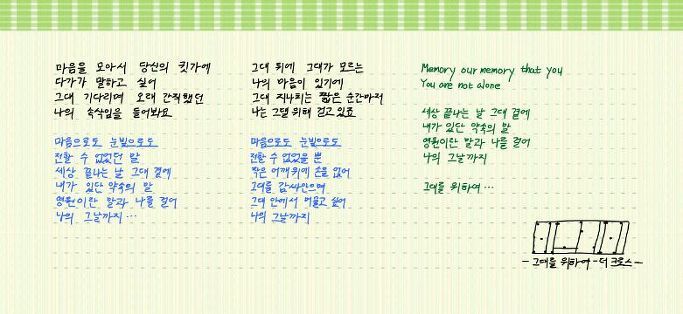 마음을 모아서 당신의 귓가에
다가가 말하고 싶어
그대 기다리며 오래 간직했던
나의 속삭임을 들어봐요
마음으로도 눈빛으로도
전할 수 없었던 말
세상 끝나는 날 그대 곁에
내가 있단 약속의 말
영원이란 말과 나를 걸어
나의 그날까지...
그대 뒤에 그대가 모르는
나의 마음이 있기에
그대 지나치는 짧은 순간마저
나는 그댈 위해 걷고 있죠
마음으로도 눈빛으로도
전할 수 없었을 뿐
작은 어깨 위에 손을 얹어
그대를 감싸안으며
그대 안에서 머물고 싶어
나의 그날까지
Memory our memory that you
You are not alone
세상 끝나는 날 그대 곁에
내가 있단 약속의 말
영원이란 말과 나를 걸어
나의 그날까지
그대를 위하여...
- 그대를 위하여 - 더 크로스 -